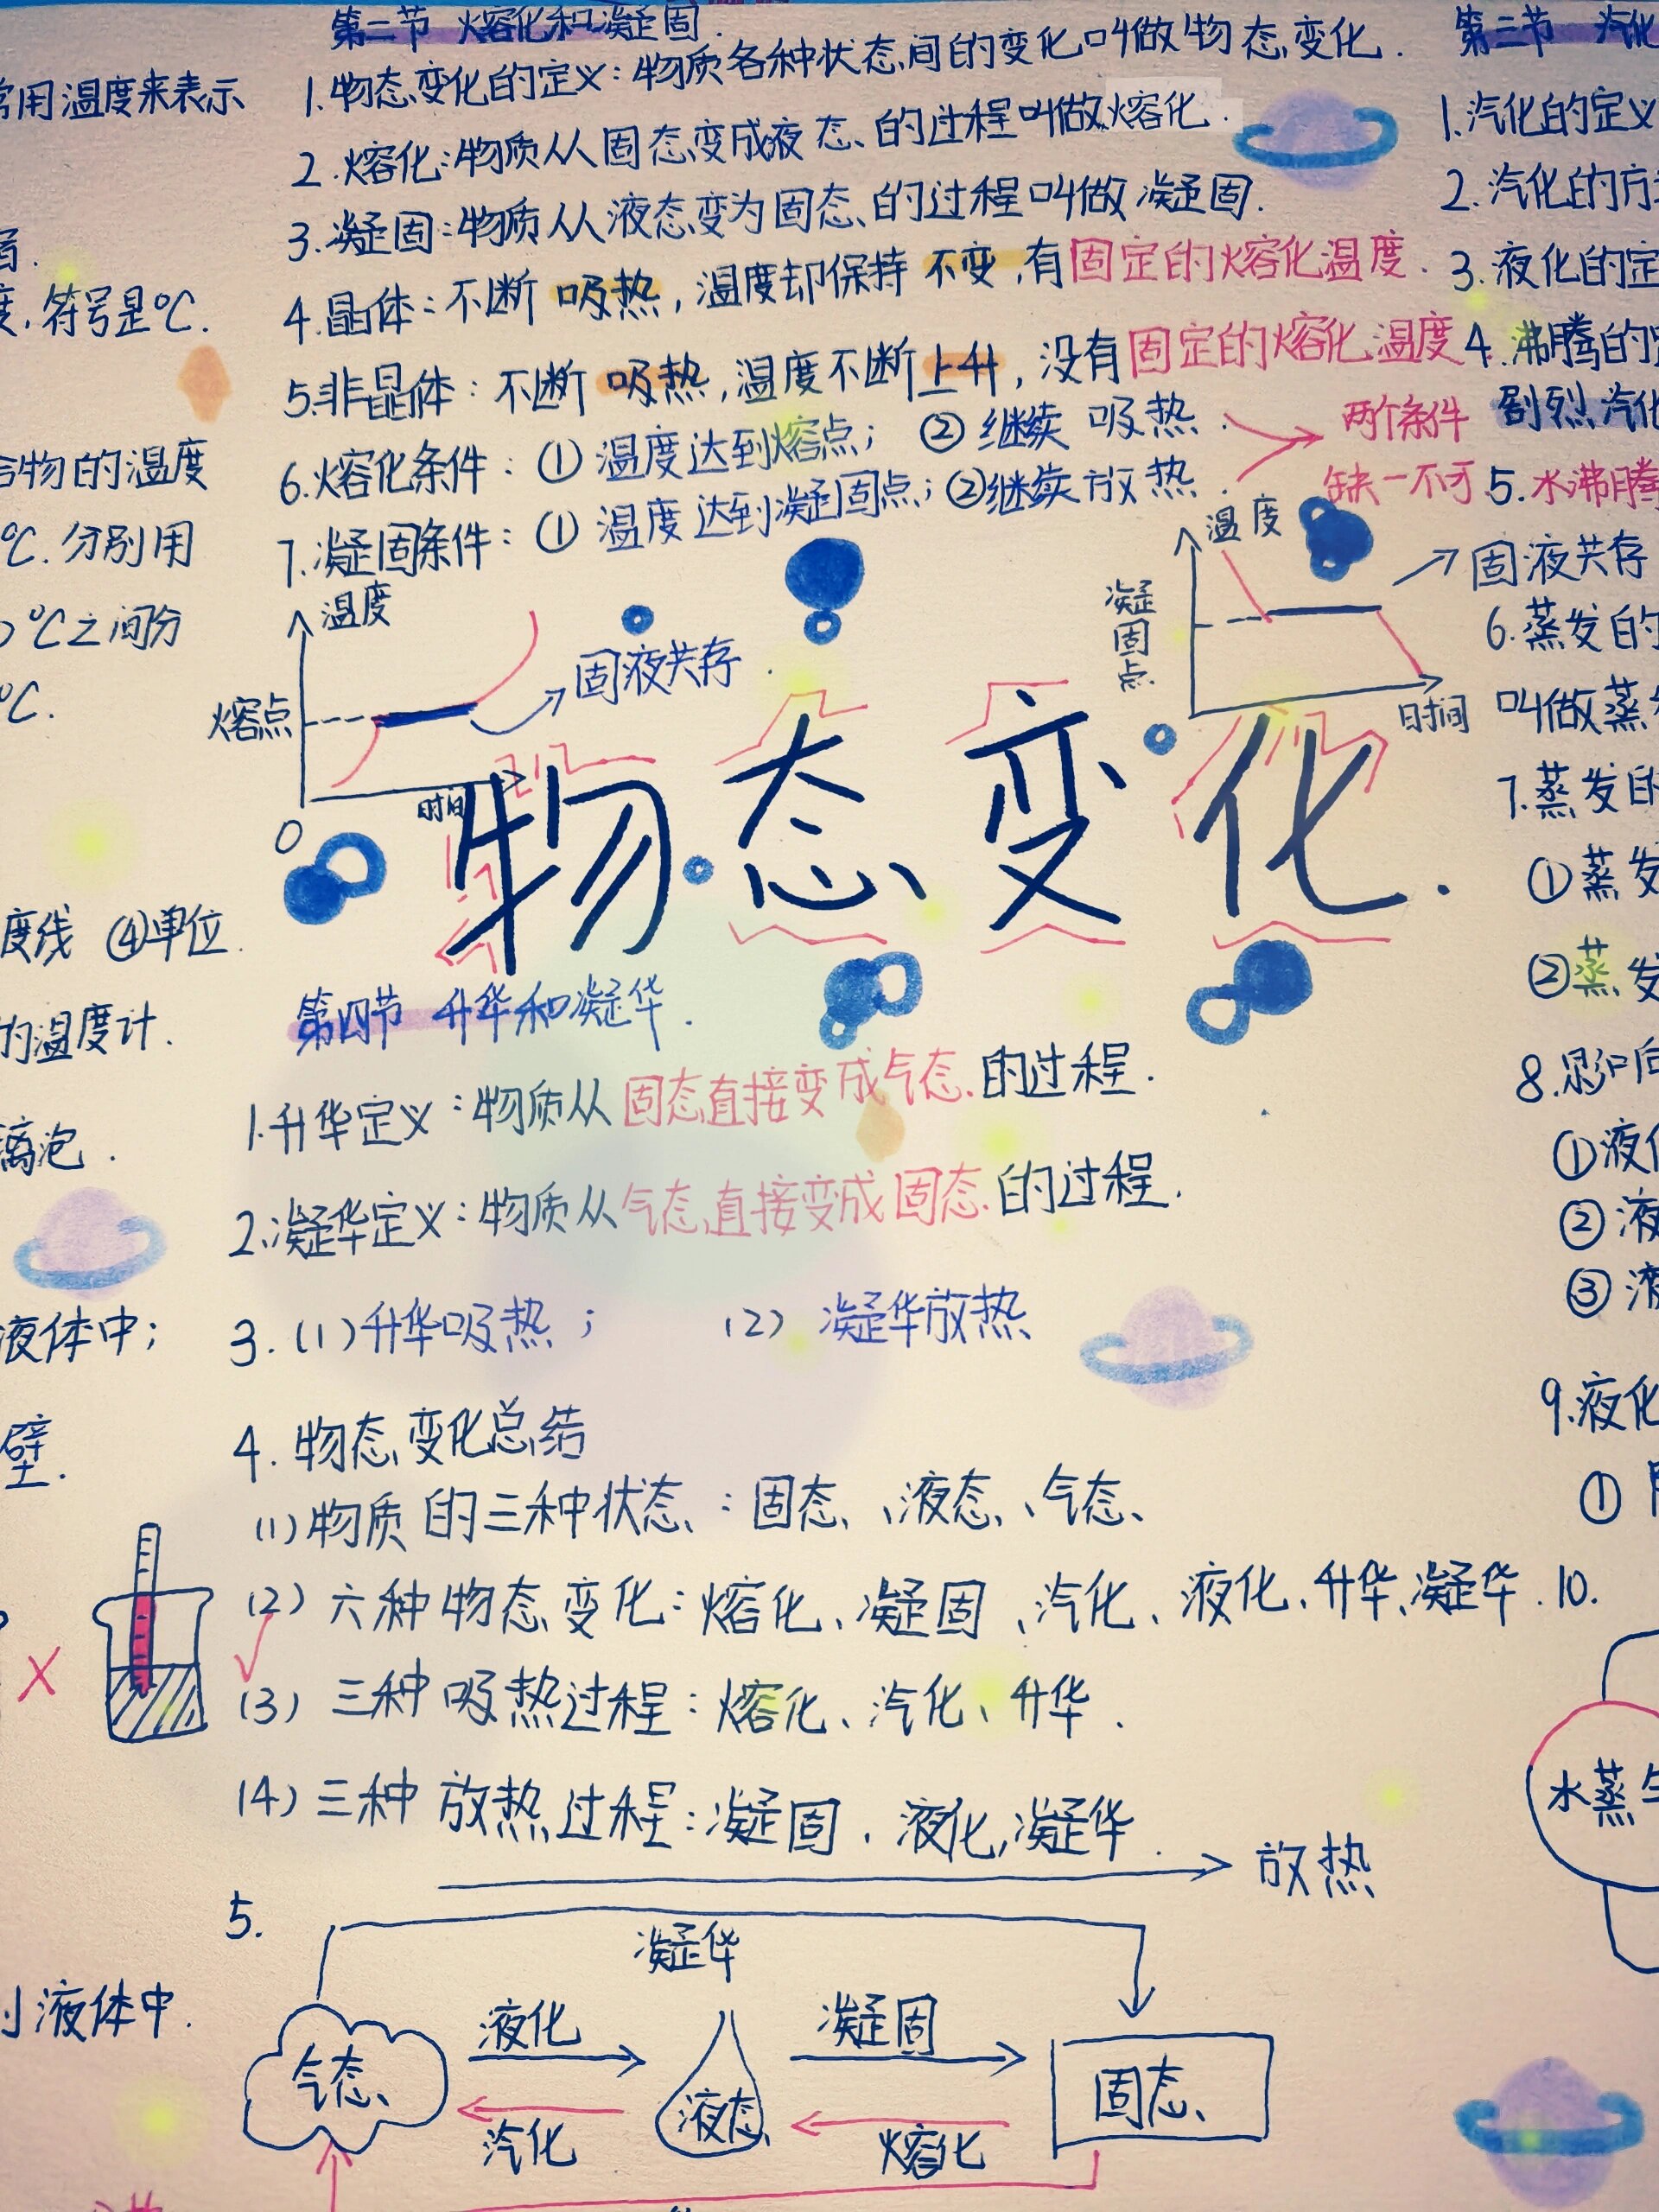 第二节 熔化和凝固.
1.物态变化的定义:物质各种状态间的变化叫做物态变化.
2.熔化:物质从固态变成液态的过程叫做熔化.
3.凝固:物质从液态变为固态的过程叫做凝固.
4.晶体:不断吸热,温度却保持不变,有固定的熔化温度.
5.非晶体:不断吸热,温度不断上升,没有固定的熔化温度
6.熔化条件:①温度达到熔点;②继续吸热.
7.凝固条件:①温度达到凝固点;②继续放热.
两个条件
缺一不可
温度
熔点
固液共存.
时间
0
温度
凝固点.
固液共存
时间
物态变化.
第四节 升华和凝华.
1.升华定义:物质从固态直接变成气态的过程.
2.凝华定义:物质从气态直接变成固态的过程.
3.(1)升华吸热; (2)凝华放热
4.物态变化总结
(1)物质的三种状态:固态、液态、气态
(2)六种物态变化:熔化、凝固、汽化、液化、升华、凝华.
(3)三种吸热过程:熔化、汽化、升华.
(4)三种放热过程:凝固、液化,凝华.
放热
5.
凝华
液化
凝固
气态
液态
固态
汽化
熔化
常用温度来表示
度,符号是℃.
合物的温度
℃.分别用
℃之间分
℃.
度线 ④单位.
的温度计.
璃泡.
液体中;
壁.
液体中.
第三节 汽化
1.汽化的定义
2.汽化的方
3.液化的定
4.沸腾的
剧烈汽化
5.水沸腾
6.蒸发的
叫做蒸
7.蒸发的
①蒸发
②蒸发
8.影响
①液
②液
③液
9.液化
①
10.
水蒸